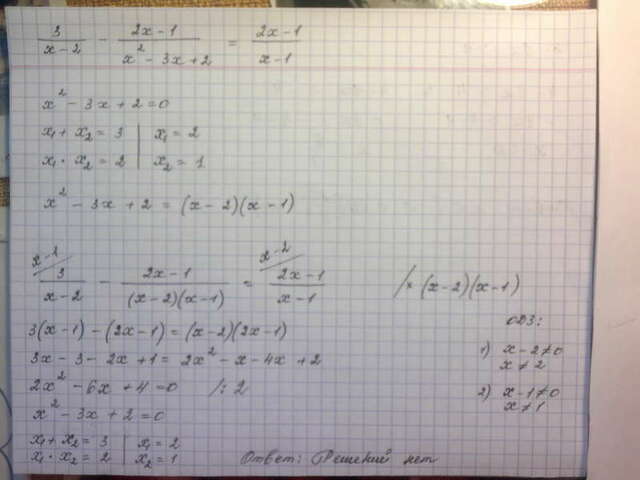 3/(x-2) - (2x-1)/(x² - 3x + 2) = (2x-1)/(x-1)
x² - 3x + 2 = 0
x₁ + x₂ = 3 | x₁ = 2
x₁ · x₂ = 2 | x₂ = 1
x² - 3x + 2 = (x-2)(x-1)
x-1/ 3/(x-2) - (2x-1)/((x-2)(x-1)) = x-2/ (2x-1)/(x-1) /× (x-2)(x-1)
3(x-1) - (2x-1) = (x-2)(2x-1)
3x - 3 - 2x + 1 = 2x² - x - 4x + 2
2x² - 6x + 4 = 0 /: 2
x² - 3x + 2 = 0
x₁ + x₂ = 3 | x₁ = 2
x₁ · x₂ = 2 | x₂ = 1
ОДЗ:
1) x - 2 ≠ 0
x ≠ 2
2) x - 1 ≠ 0
x ≠ 1
Ответ: Решений нет